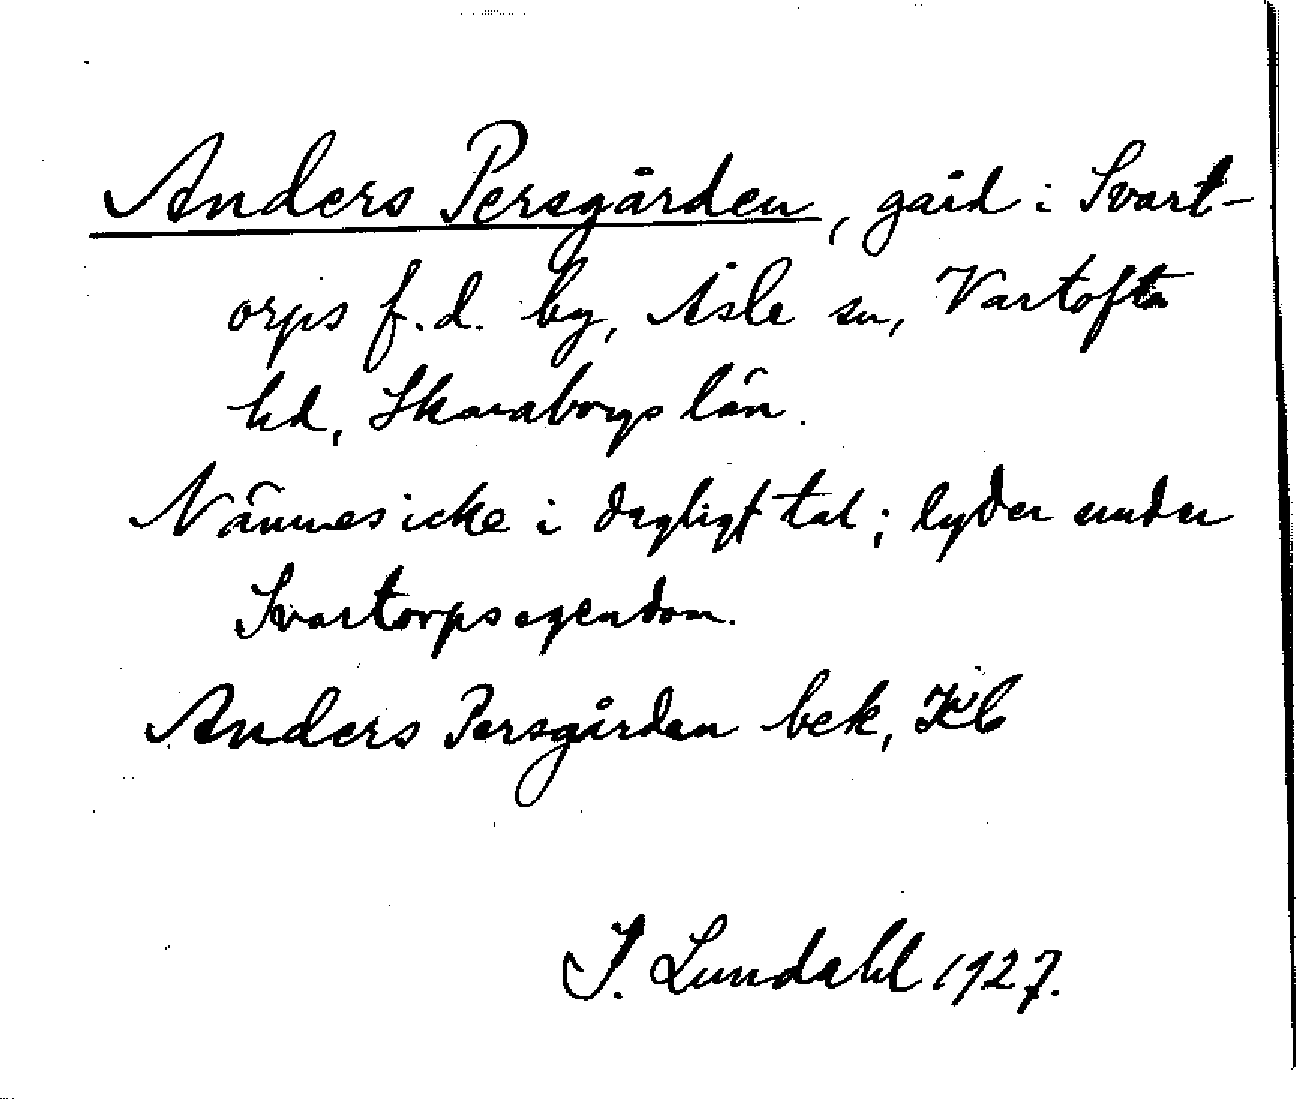 Anders Persgården, gård i Svart-
orps f.d. by, Åsle sn, Vartofta
hd, Skaraborgs län.
Nämnes icke i dagligt tal; lyder under
Svartorpsegendom.
Anders Persgården bek, Kb
I. Lundahl 1927.